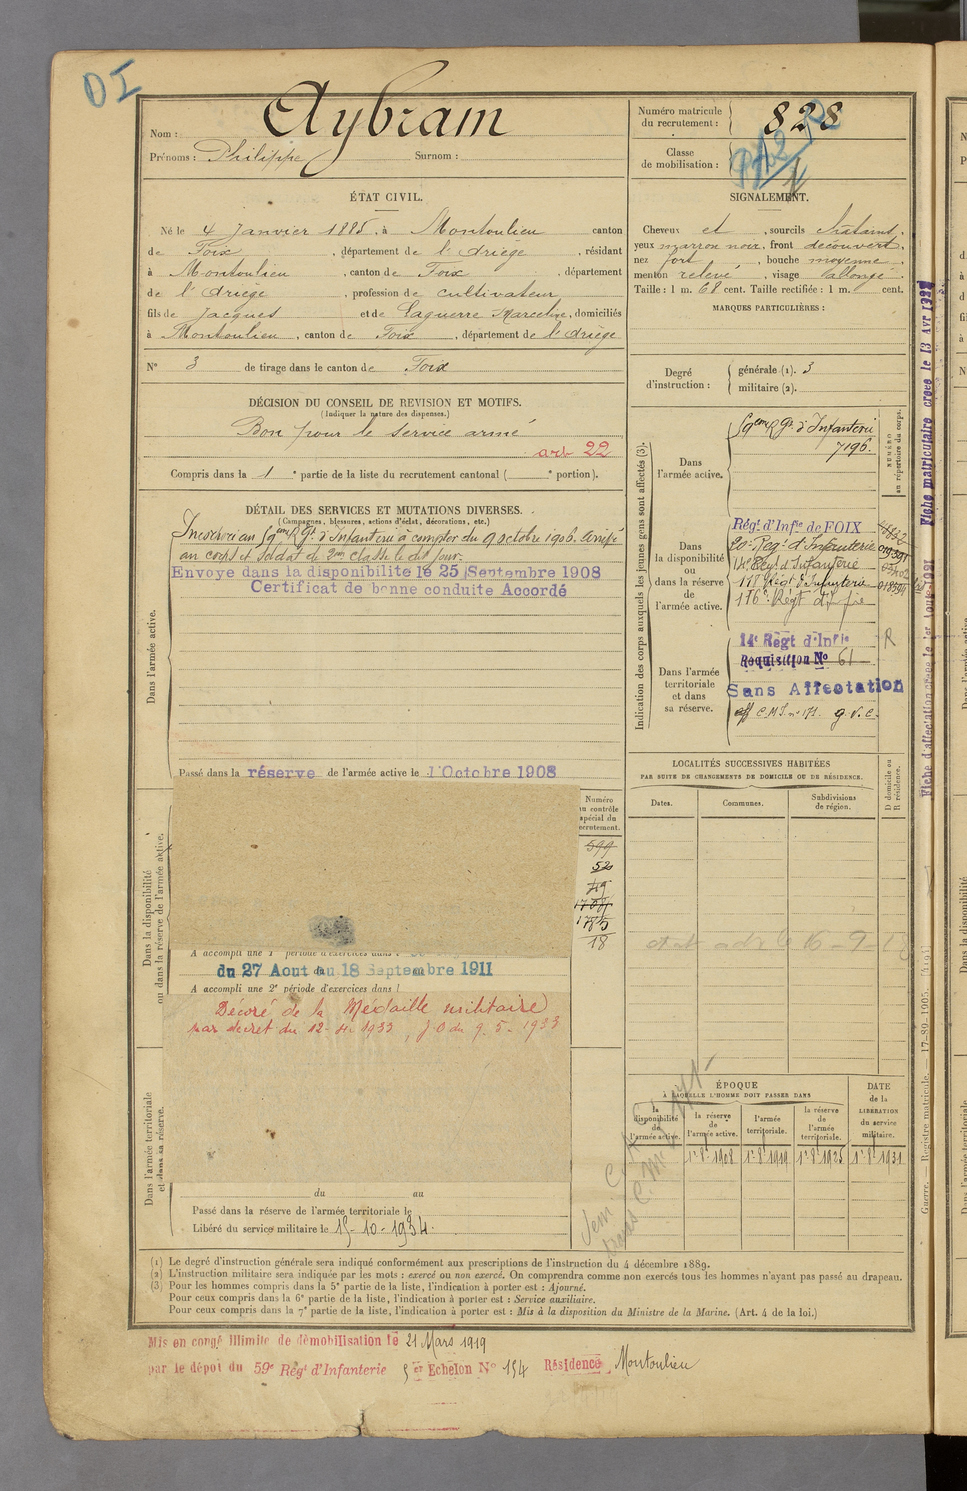 DI
Nom : Aybram
Prénoms : Philippe Surnom :
Numéro matricule du recrutement : 828
Classe de mobilisation :
ÉTAT CIVIL.
Né le 4 Janvier 1885, à Montoulieu canton
de Foix, département de l'Ariège, résidant
à Montoulieu, canton de Foix, département
de l'Ariège, profession de cultivateur
fils de Jacques et de Laguerre Marceline, domiciliés
à Montoulieu, canton de Foix, département de l'Ariège
N° 3 de tirage dans le canton de Foix
SIGNALEMENT.
Cheveux et, sourcils chatains,
yeux marron noir, front découvert,
nez fort, bouche moyenne,
menton relevé, visage allongé.
Taille : 1 m. 68 cent. Taille rectifiée : 1 m. cent.
MARQUES PARTICULIÈRES :
Degré d'instruction : générale (1). 3
militaire (2).
DÉCISION DU CONSEIL DE REVISION ET MOTIFS.
(Indiquer la nature des dispenses.)
Bon pour le service armé
art 22
Compris dans la 1e partie de la liste du recrutement cantonal ( e portion).
DÉTAIL DES SERVICES ET MUTATIONS DIVERSES.
(Campagnes, blessures, actions d'éclat, décorations, etc.)
Incorporé au 59eme Rgt d'Infanterie à compter du 9 octobre 1906. Arrivé
au corps et soldat de 2eme classe le dit jour.
Envoyé dans la disponibilité le 25 Septembre 1908
Certificat de bonne conduite Accordé
Dans l'armée active.
Passé dans la réserve de l'armée active le 1 Octobre 1908
Indication des corps auxquels les jeunes gens sont affectés (3).
NUMÉRO au répertoire du corps.
Dans l'armée active.
59eme Rgt d'Infanterie
7196.
Dans la disponibilité ou dans la réserve de l'armée active.
Régt d'Infie de FOIX
20e Regt d'Infanterie
14e Regt d'Infanterie
117 Régt d'Infanterie
116e Régt d'Infie
Dans l'armée territoriale et dans sa réserve.
14e Régt d'Infie R
Requisition No 61
Sans Affectation
aff C.M.I. n° 171. g.V.C.
Fiche matriculaire créée le 13 Avr 1927
LOCALITÉS SUCCESSIVES HABITÉES
PAR SUITE DE CHANGEMENTS DE DOMICILE OU DE RÉSIDENCE.
Dates. Communes. Subdivisions de région. D domicile ou R résidence.
Dans la disponibilité ou dans la réserve de l'armée active.
Numéro au contrôle spécial du recrutement.
599
52
49
1785
18
A accompli une 1e période d'exercices dans :
du 27 Aout au 18 Septembre 1911
A accompli une 2e période d'exercices dans
Décoré de la Médaille militaire
par décret du 12-4-1933, J.O du 9.5-1933
Dans l'armée territoriale et dans sa réserve.
du au
Passé dans la réserve de l'armée territoriale le
Libéré du service militaire le 15-10-1934.
ÉPOQUE
À LAQUELLE L'HOMME DOIT PASSER DANS
la disponibilité de l'armée active. la réserve de l'armée active. l'armée territoriale. la réserve de l'armée territoriale.
DATE de la LIBÉRATION du service militaire.
1er 8bre 1908 1er 8bre 1919 1er 8bre 1925 1er 8bre 1931
Guerre. — Registre matricule. — 17-89-1905.
(1) Le degré d'instruction générale sera indiqué conformément aux prescriptions de l'instruction du 4 décembre 1889.
(2) L'instruction militaire sera indiquée par les mots : exercé ou non exercé. On comprendra comme non exercés tous les hommes n'ayant pas passé au drapeau.
(3) Pour les hommes compris dans la 5e partie de la liste, l'indication à porter est : Ajourné.
Pour ceux compris dans la 6e partie de la liste, l'indication à porter est : Service auxiliaire.
Pour ceux compris dans la 7e partie de la liste, l'indication à porter est : Mis à la disposition du Ministre de la Marine. (Art. 4 de la loi.)
Mis en congé illimité de démobilisation le 21 Mars 1919
par le dépot du 59e Régt d'Infanterie 5 Echelon No 154 Résidence, Montoulieu